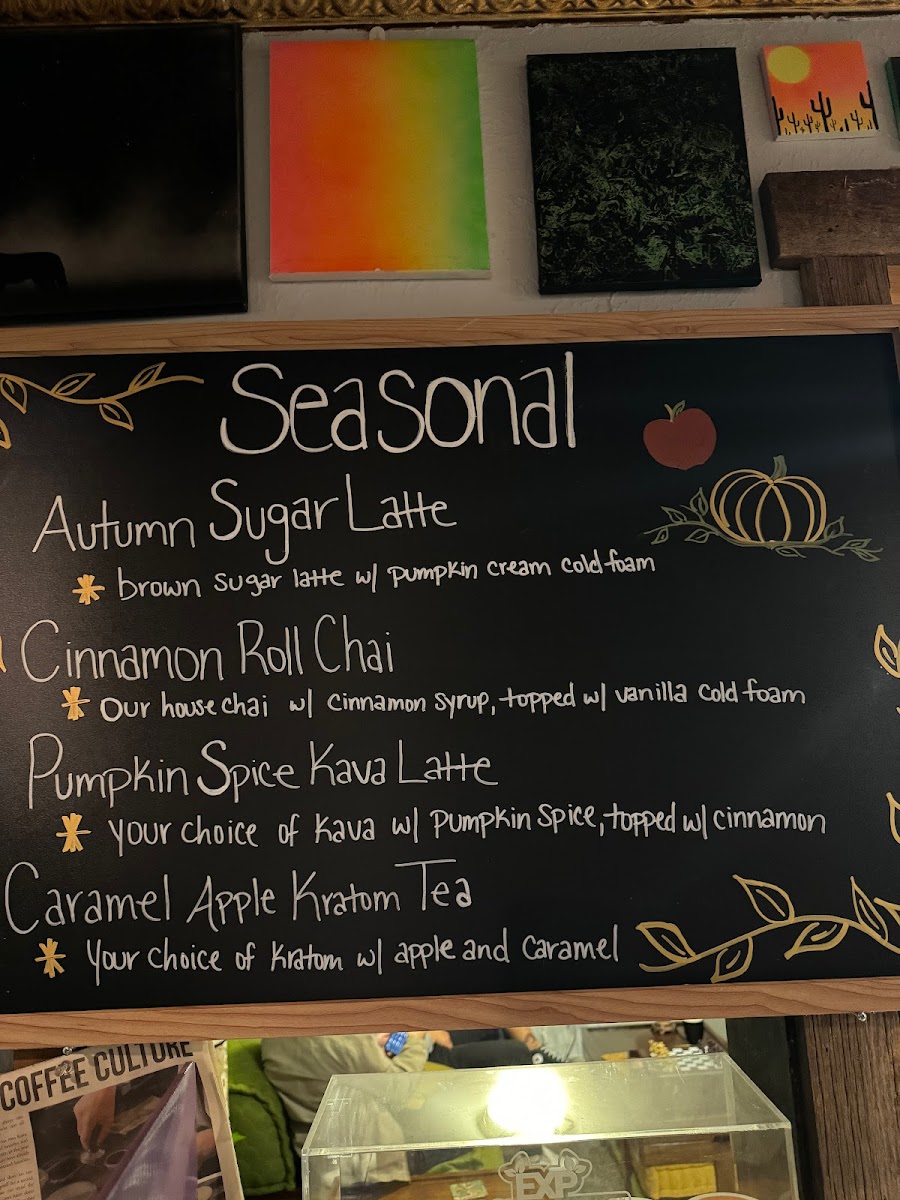 Seasonal
Autumn Sugar Latte
brown sugar latte w/ pumpkin cream cold foam
Cinnamon Roll Chai
Our house chai w/ cinnamon syrup, topped w/ vanilla cold foam
Pumpkin Spice Kava Latte
Your choice of Kava w/ pumpkin spice, topped w/ cinnamon
Caramel Apple Kratom Tea
Your choice of Kratom w/ apple and caramel
COFFEE CULTURE
EXP